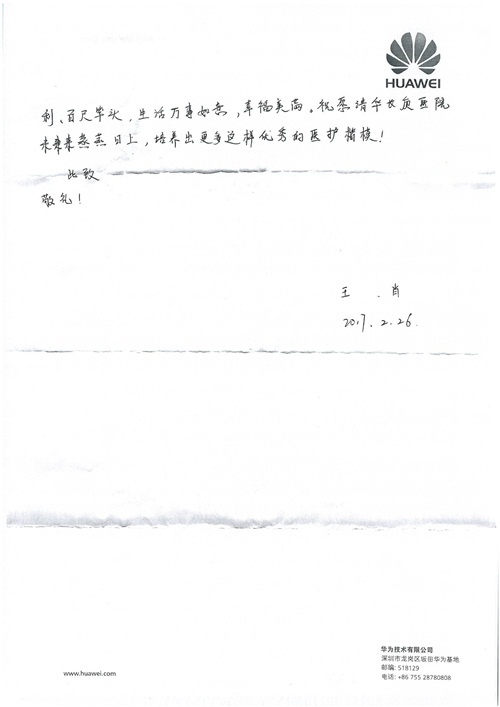 HUAWEI
利、百尺竿头，生活万事如意，幸福美满。祝愿清华长庚医院
未来蒸蒸日上，培养出更多这样优秀的医护楷模！
此致
敬礼！
王 肖
2017.2.26.
华为技术有限公司
深圳市龙岗区坂田华为基地
邮编: 518129
电话: +86 755 28780808
www.huawei.com